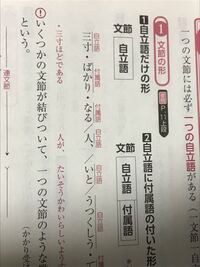 一つの文節には必ず一つの自立語がある
1 文節の形 P.11上段
1 自立語だけの形
文節
自立語
2 自立語に付属語の付いた形
文節
自立語 付属語
自立語 付属語 付属語 自立語
三寸・ばかり・なる／人、／いと／うつくしう・
・三寸ほどである 人が、 たいそうかわいらしいよう
いくつかの文節が結びついて、一つの文節のような
という。
連文節